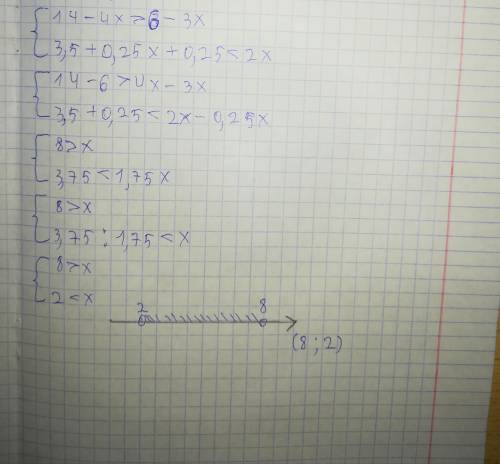 14 - 4x > 6 - 3x
3,5 + 0,25x + 0,25 < 2x
14 - 6 > 4x - 3x
3,5 + 0,25 < 2x - 0,25x
8 > x
3,75 < 1,75x
8 > x
3,75 : 1,75 < x
8 > x
2 < x
2 8
(8 ; 2)